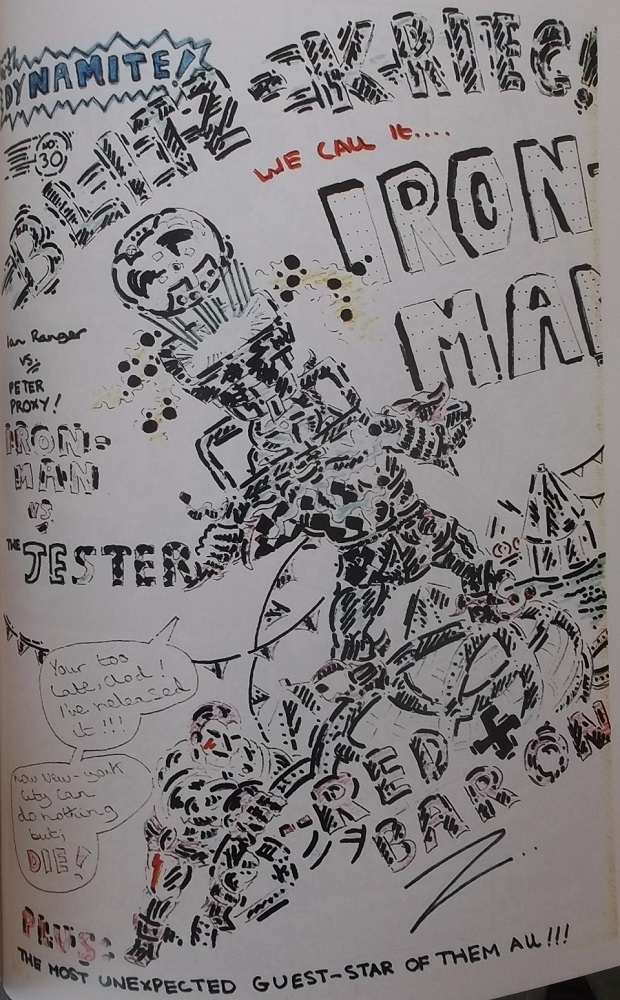 DYNAMITE!
BLITZ-K-RIEG!
No. 30
WE CALL IT....
IRON-
MAN
Ian Ranger
VS.
PETER
PROXY!
IRON-
MAN
VS.
THE JESTER
Your too
late, clod!
I've released
it!!!
now New-York
City can
do nothing
but;
DIE!
RED
BARON
PLUS:
THE MOST UNEXPECTED GUEST-STAR OF THEM ALL!!!